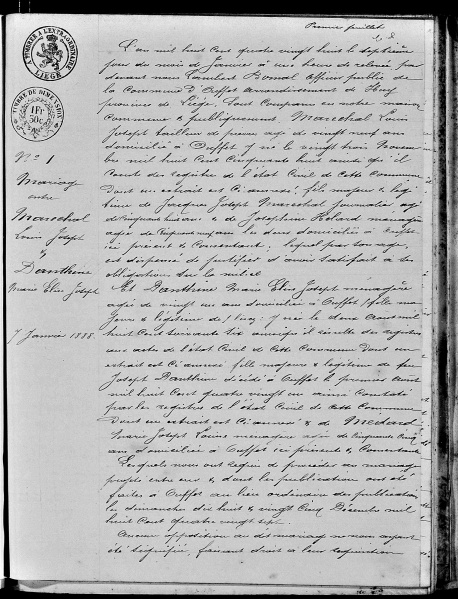 Premier feuillet
A TIMBRER A L'EXTRAORDINAIRE
LIEGE
TIMBRE DE DIMENSION
1 Fr
50c
No 1
Mariage
entre
Marechal
Louis Joseph
&
Danthine
Marie Elise Joseph
7 Janvier 1888
L'an mil huit cent quatre vingt huit le septième
jour du mois de Janvier à une heure de relevée par
devant nous Officier public de
la Commune d'Ouffet arrondissement de Huy
province de Liège, sont comparus en notre maison
commune & publiquement, Marechal Louis
Joseph tailleur de pierre agé de vingt neuf ans
domicilié à Ouffet y né le vingt trois Novem
bre mil huit cent cinquante huit ainsi qu'il
conste des registres de l'état Civil de cette commune
dont un extrait est ci annexé; fils majeur & légi
time de Jacques Joseph Marechal journalier agé
de & de Josephine ménagère
agée de les deux domiciliés à Ouffet
ici présents & consentants; lequel par son age,
est dispensé de justifier d'avoir satisfait à ses
obligations de la milice
Et Danthine Marie Elise Joseph ménagère
agée de vingt un ans domiciliée à Ouffet
y née le deux Aout mil
huit cent soixante six ainsi qu'il résulte des registres
aux actes de l'état Civil de cette Commune dont un
extrait est ci annexé fille majeure & légitime de feu
Joseph Danthine décédé à Ouffet le premier Aout
mil huit cent quatre vingt un ainsi constaté
par les registres de l'état Civil de cette Commune
dont un extrait est ci annexé & de
Marie Joseph ménagère agée de cinquante cinq
ans domiciliée à Ouffet ici présente & consentante
Lesquels nous ont requis de procéder au mariage
projeté entre eux & dont les publications ont été
faites à Ouffet au lieu ordinaire des publications
les dimanches dix huit & vingt cinq Décembre mil
huit cent quatre vingt sept.
Aucune opposition au dit mariage ne nous ayant
été signifiée, faisant droit à leur réquisition